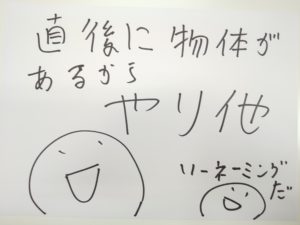 直後に物体が
あるから
やり他
リーネーミング
だ